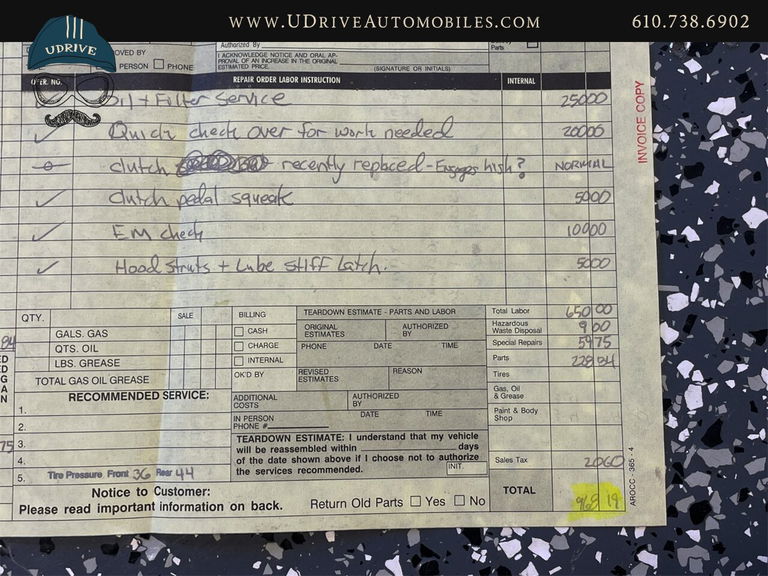 WWW.UDRIVEAUTOMOBILES.COM 610.738.6902
UDRIVE
Authorized By
Parts
OVED BY
PERSON PHONE
I ACKNOWLEDGE NOTICE AND ORAL AP-
PROVAL OF AN INCREASE IN THE ORIGINAL
ESTIMATED PRICE.
(SIGNATURE OR INITIALS)
OPER. NO. REPAIR ORDER LABOR INSTRUCTION INTERNAL
INVOICE COPY
Oil + Filter Service 25000
Quick check over for work needed 20000
clutch recently replaced - Engages high? NORMAL
Clutch pedal squeak 5000
EM check 10000
Hood struts + Lube stiff Latch. 5000
QTY. SALE BILLING TEARDOWN ESTIMATE - PARTS AND LABOR Total Labor 650 00
GALS. GAS CASH ORIGINAL ESTIMATES AUTHORIZED BY Hazardous Waste Disposal 9 00
QTS. OIL CHARGE PHONE DATE TIME Special Repairs 59 75
LBS. GREASE INTERNAL Parts 228 84
TOTAL GAS OIL GREASE OK'D BY REVISED ESTIMATES REASON Tires
RECOMMENDED SERVICE: ADDITIONAL COSTS AUTHORIZED BY Gas, Oil & Grease
1. DATE TIME Paint & Body Shop
2. IN PERSON PHONE #
3. TEARDOWN ESTIMATE: I understand that my vehicle
will be reassembled within days
4. of the date shown above if I choose not to authorize Sales Tax 2060
the services recommended. INIT.
5. Tire Pressure Front 36 Rear 44
Notice to Customer: TOTAL 968 19
Please read important information on back. Return Old Parts Yes No
AROCC - 365 - 4